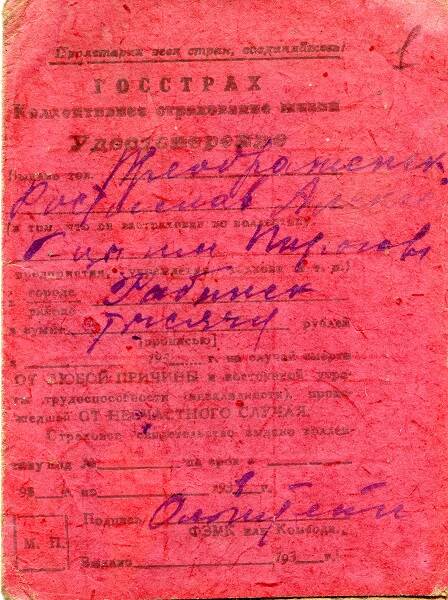 Пролетарии всех стран, соединяйтесь!
1
ГОССТРАХ
Коллективное страхование жизни
Удостоверение
Выдано тов. Преображенск
Ростислав
(в том, что он застрахован по коллективу
б-цы им Пирогова
предприятия, учреждения, колхоза и т. д.)
городе
районе
Рабинск
в сумме тысячи рублей
(прописью)
193 г. на случай смерти
ОТ ЛЮБОЙ ПРИЧИНЫ и постоянной утра-
ты трудоспособности (инвалидности), проис-
шедшей ОТ НЕСЧАСТНОГО СЛУЧАЯ.
Страховое свидетельство выдано коллек-
тиву под № на срок с
193 по 193 г.
Подпись
ФЗМК или Комбода
М. П.
Выдано 193 г.